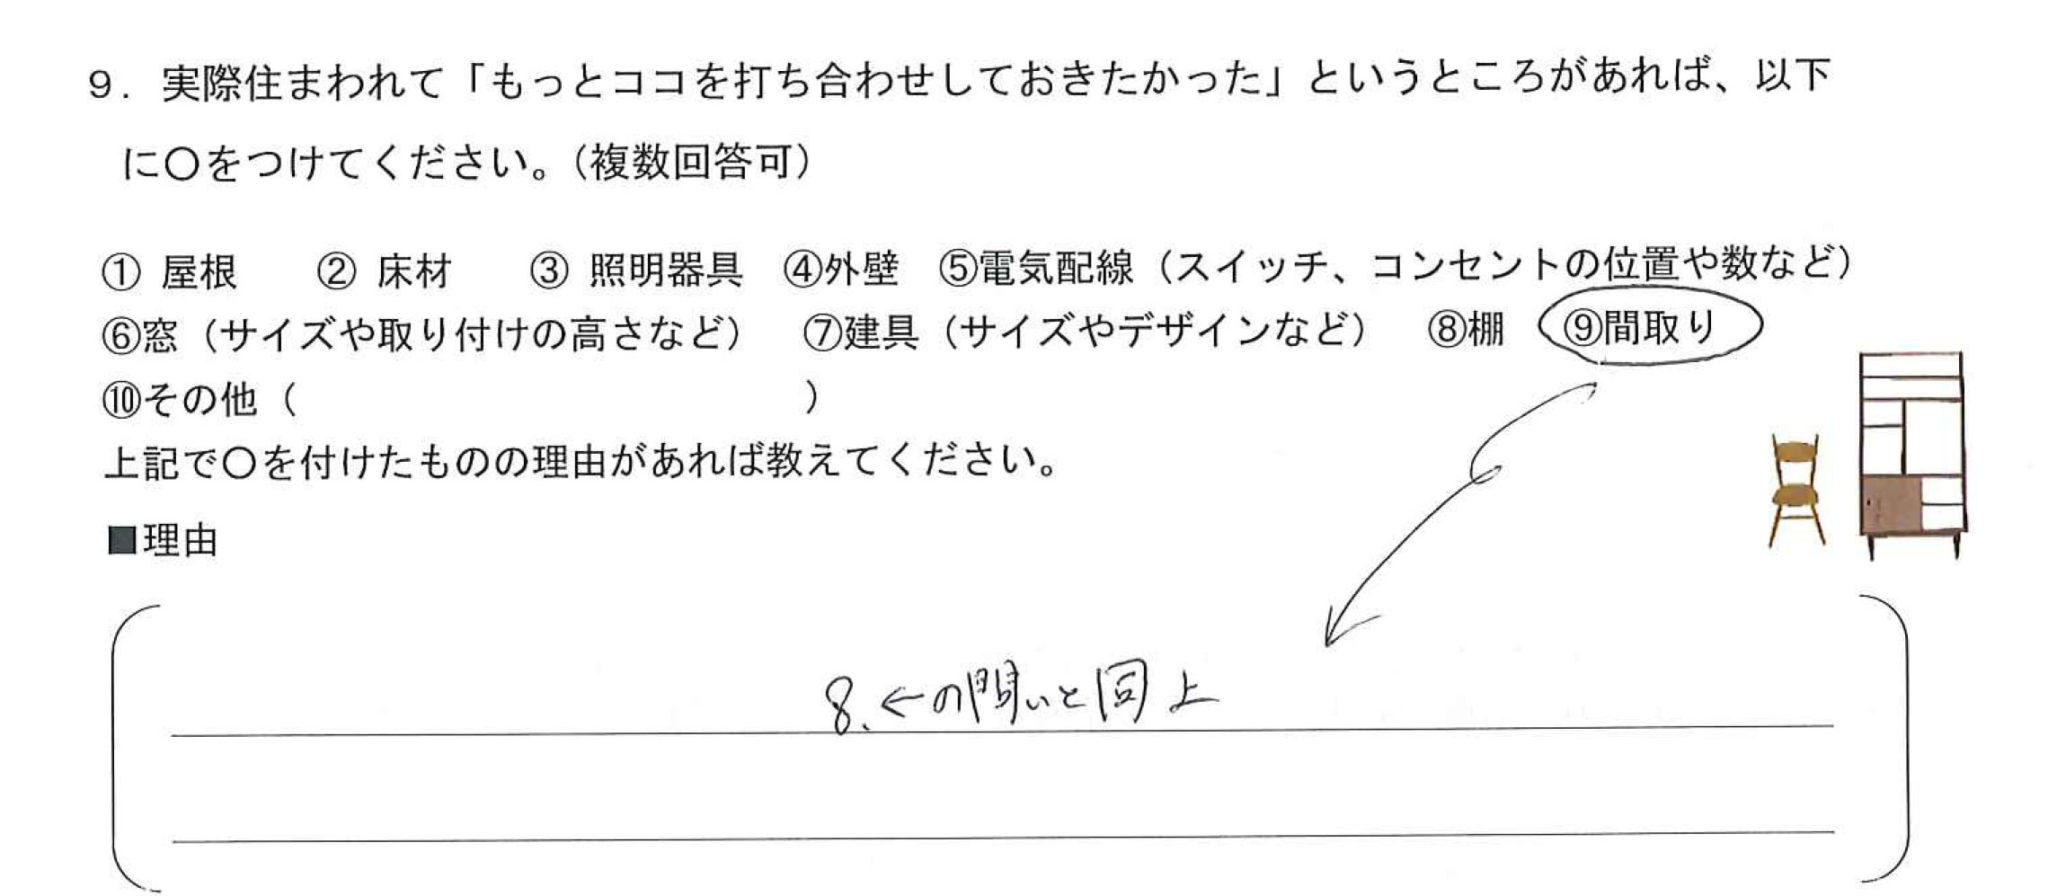 9．実際住まわれて「もっとココを打ち合わせしておきたかった」というところがあれば、以下
に〇をつけてください。（複数回答可）
① 屋根　② 床材　③ 照明器具　④外壁　⑤電気配線（スイッチ、コンセントの位置や数など）
⑥窓（サイズや取り付けの高さなど）　⑦建具（サイズやデザインなど）　⑧棚　⑨間取り
⑩その他（　　　　　　　　　　　　　）
上記で〇を付けたものの理由があれば教えてください。
■理由
8.←の問いと同上